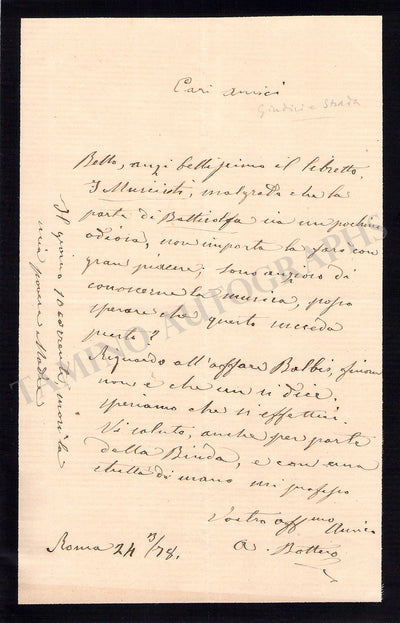 Cari Amici
Giudici e Strada
Bello, anzi bellissimo il libretto.
I Moncicoti, malgrado che la
parte di Batticoffa sia un pochino
odiosa, non importa la farò con
gran piacere, sono anzioso di
conoscerne la musica, posso
sperare che questo succeda
presto?
Riguardo all'affare Balbis, finora
non è che un si dice.
speriamo che si effettui.
Vi saluto, anche per parte
della Binda, e con una
stretta di mano mi professo
Vostro affmo Amico
A. Bottero
Roma 24 /78.
Il giorno corrente, morì la
mia povera Madre
TAMINO AUTOGRAPHS